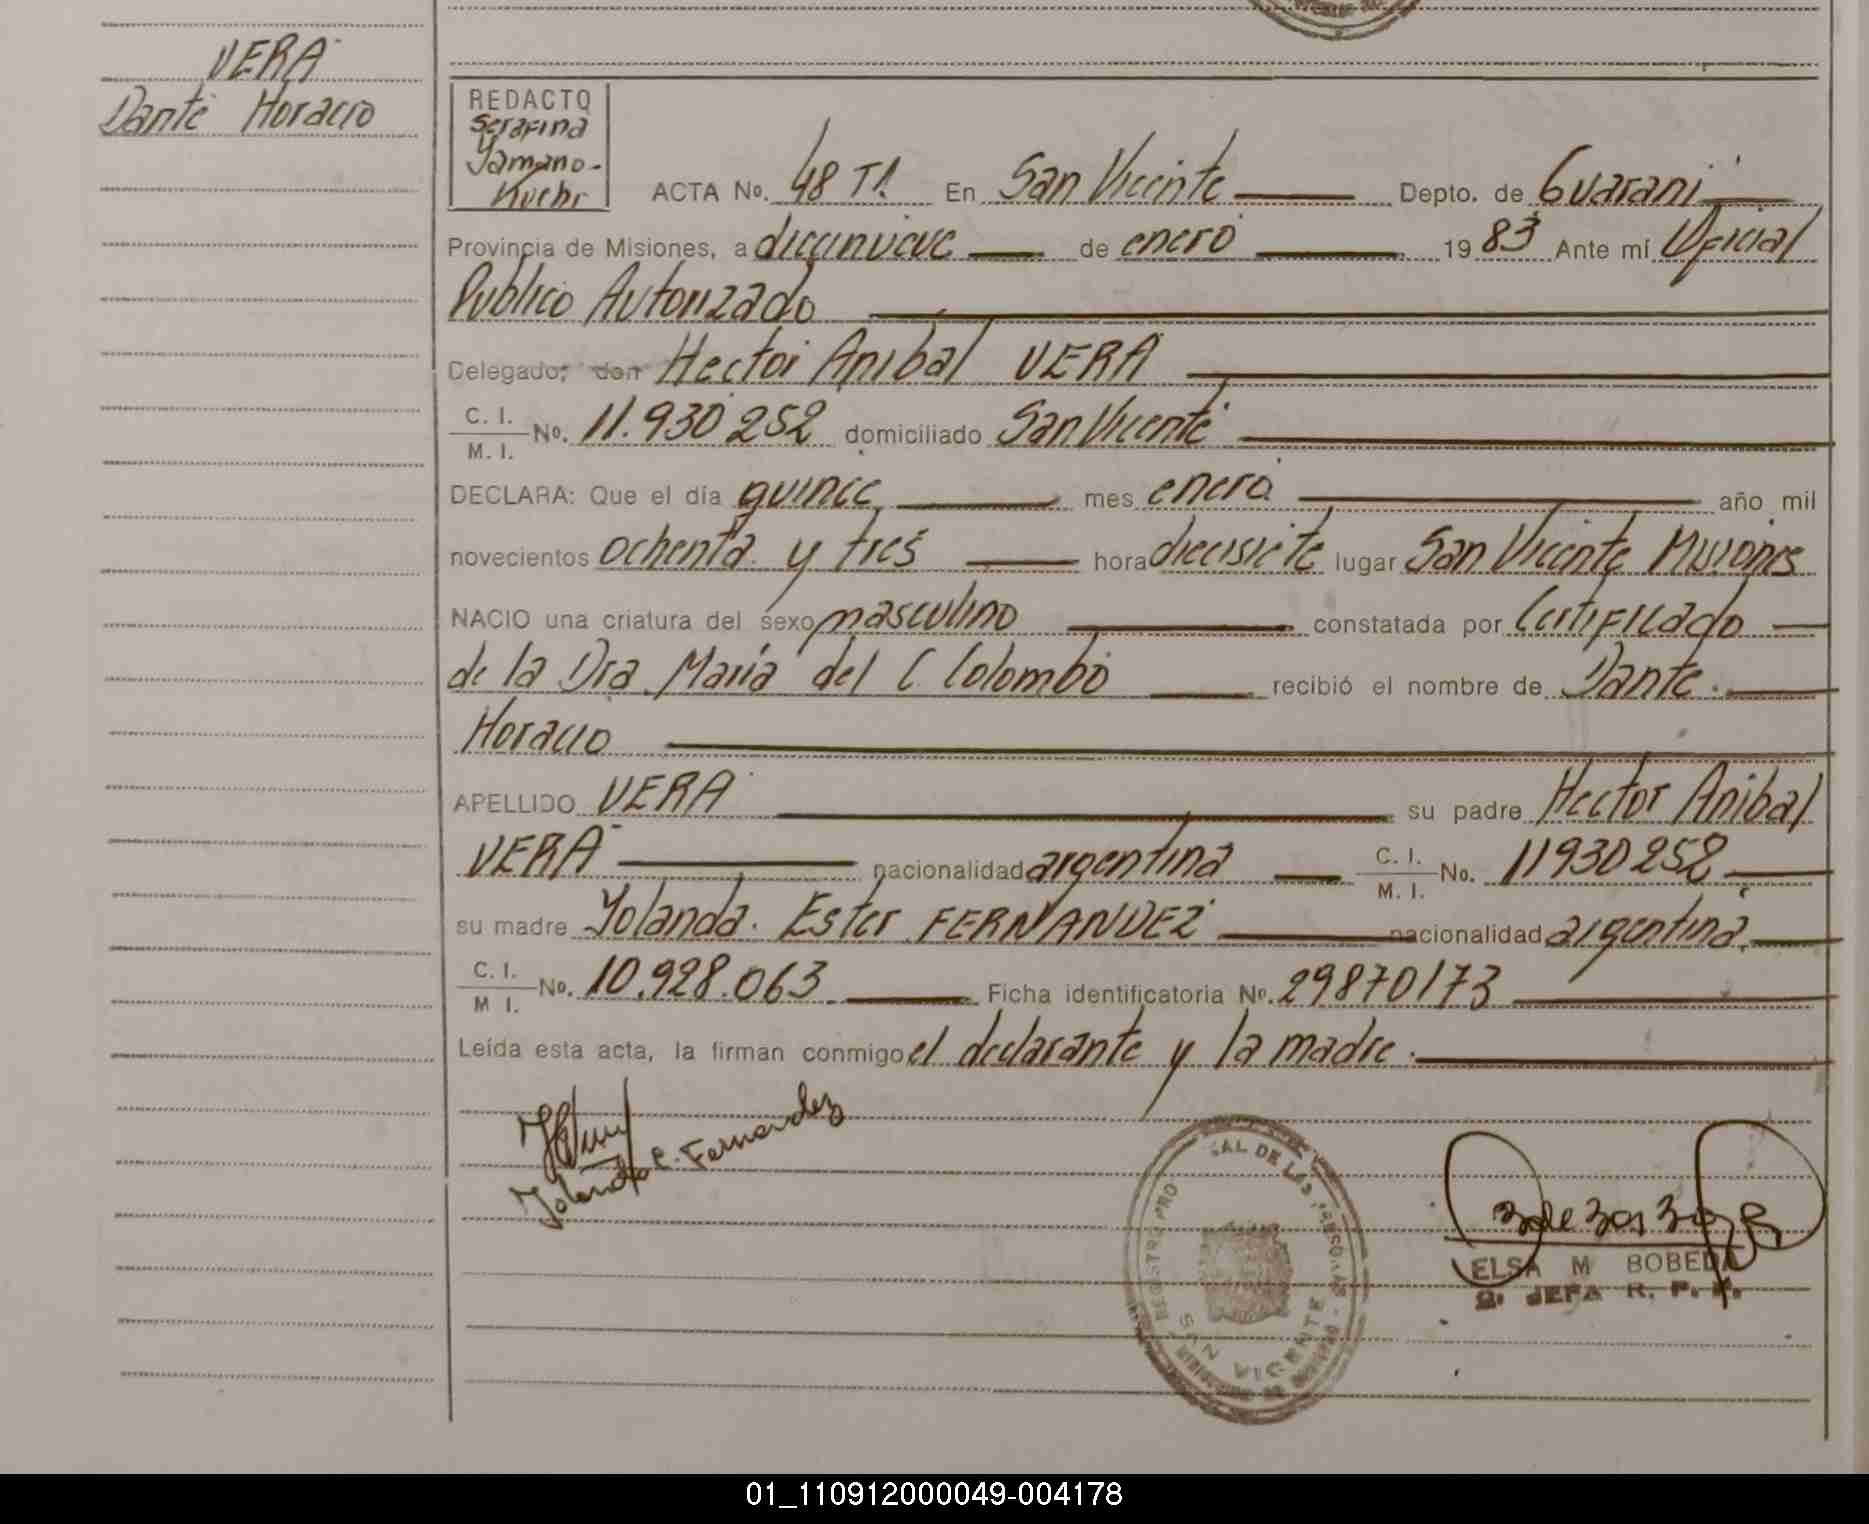 VERA
Dante Horacio
REDACTO
Serafina
Yamano-
Kuchi
ACTA No. 48 T1. En San Vicente Depto. de Guarani
Provincia de Misiones, a diecinueve de enero 1983 Ante mí Oficial
Publico Autorizado
Delegado; don Hector Anibal VERA
C. I.
M. I. No. 11.930 252 domiciliado San Vicente
DECLARA: Que el día quince mes enero año mil
novecientos ochenta y tres hora diecisiete lugar San Vicente Misiones
NACIO una criatura del sexo masculino constatada por Certificado
de la Dra María del C Colombo recibió el nombre de Dante
Horacio
APELLIDO VERA su padre Hector Anibal
VERA nacionalidad argentina C. I. M. I. No. 11930252
su madre Yolanda Ester FERNANDEZ nacionalidad argentina
C. I. M I. No. 10.928.063 Ficha identificatoria No. 29870173
Leída esta acta, la firman conmigo el declarante y la madre.
Yolanda E. Fernandez
AL DE LAS PERSONAS
REGISTRO PRO
SAN VICENTE
ELSA M BOBEDA
JEFA R. P. P.
01_110912000049-004178